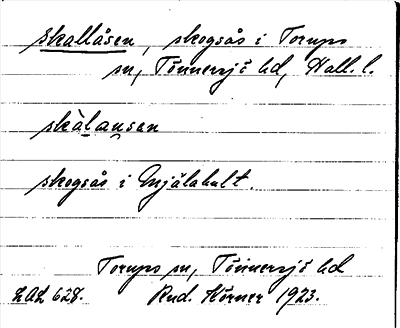 skallåsen, skogsås i Torups
sn, Tönnersjö hd, Hall. l.
skàlau̯sen
skogsås i Mjälahult.
Torups sn, Tönnersjö hd
LAL 628. Rud. Körner 1923.